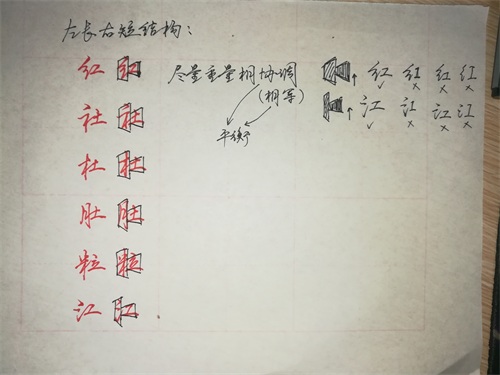 左长右短结构：
红 红 尽量重量相协调 红 红 红 红
(相等) 江 江 江 江
社 社
平衡
杜 杜
肚 肚
粒 粒
江 江